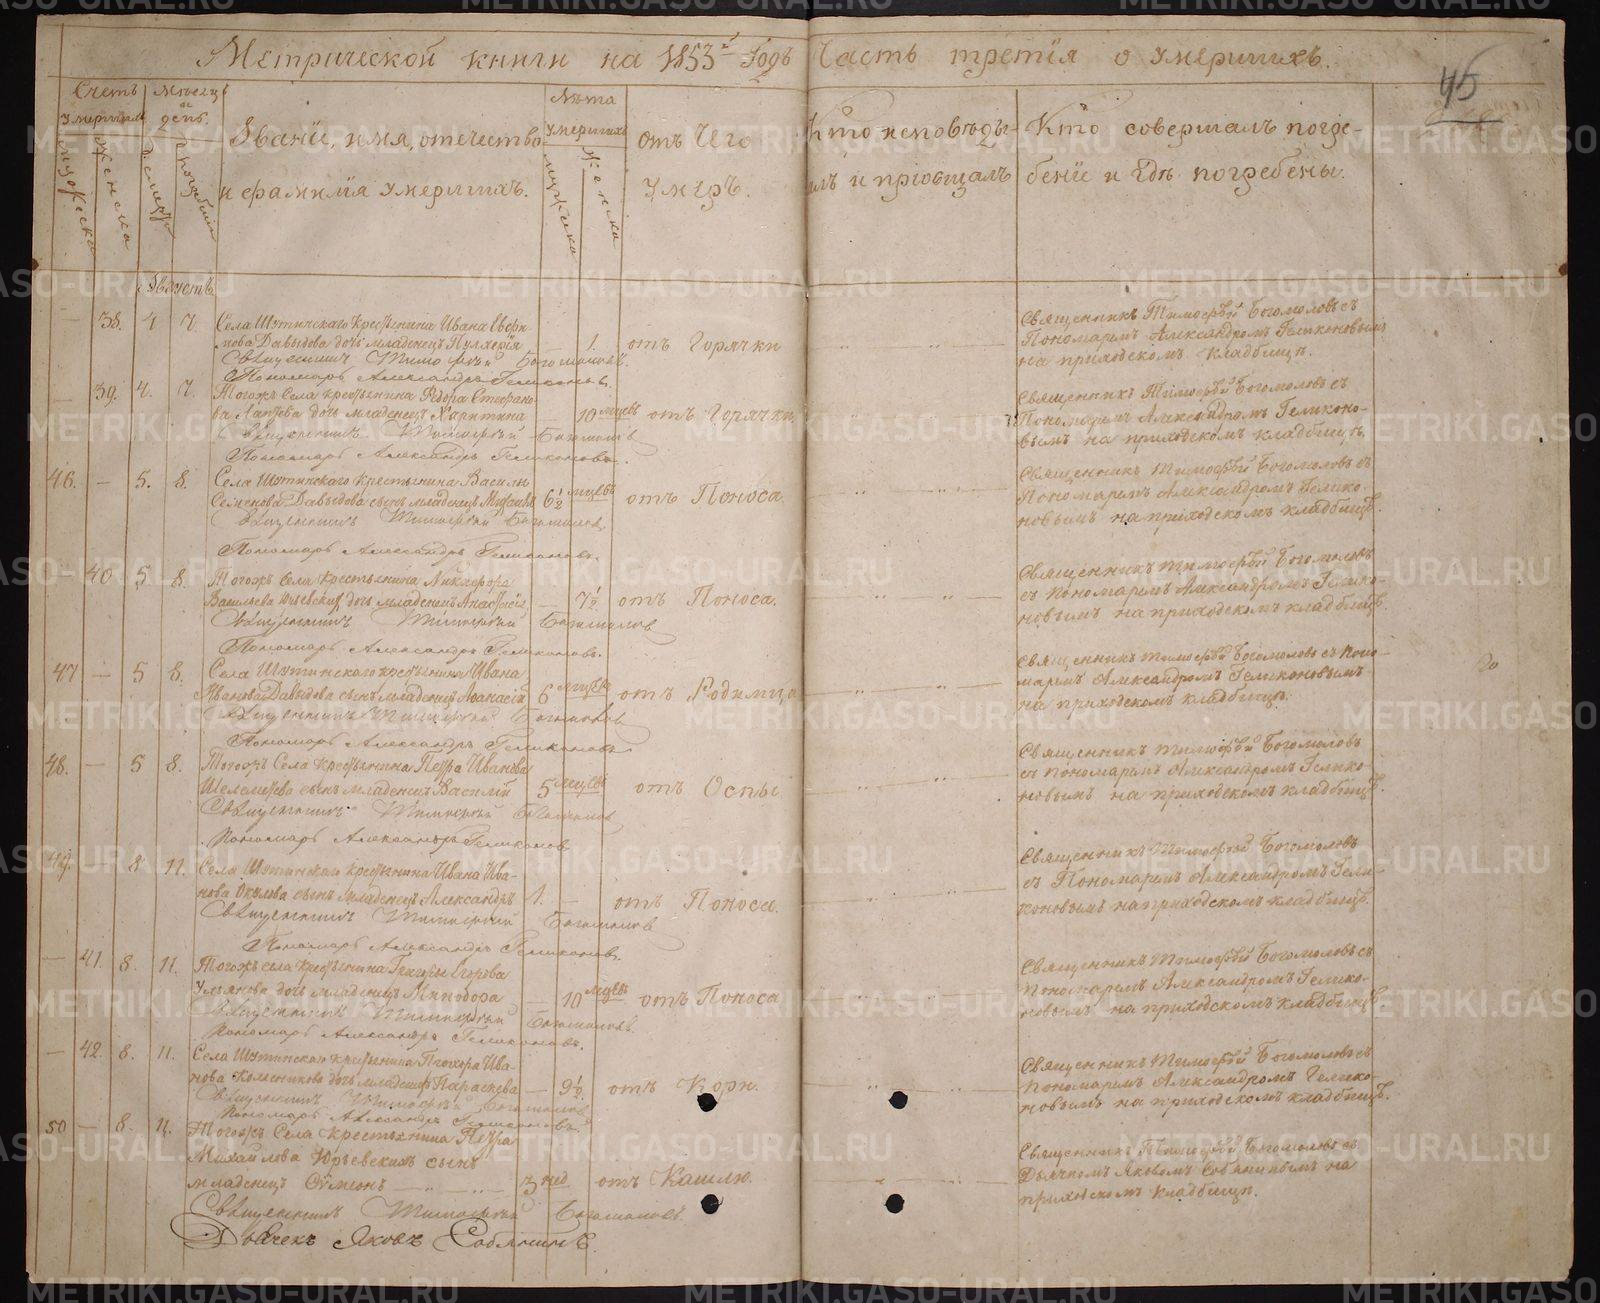 Метрической книги на 1853й Годъ Часть третія о умершихъ.
45
Счетъ умершихъ
Мѣсяцъ и день.
Званіе, имя, отечество
и фамилія умершихъ.
Лѣта умершихъ
отъ Чего
умеръ.
Кто исповѣды-
алъ и пріобщалъ
Кто совершалъ погре-
беніе и гдѣ погребены.
мужеска
женска
смерти
погребенія
мужеска
женска
Августъ
38. 4 7. Села Шутинскаго крестьянина Ивана
Давыдова дочь младенецъ Пулхерія — 1. отъ Горячки
Священникъ Тимофей Богомоловъ.
Пономарь Александръ Геликоновъ.
Священникъ Тимофей Богомоловъ съ
Пономаремъ Александромъ Геликоновымъ
на приходскомъ кладбищѣ.
39. 4. 7. Тогожъ Села крестьянина Федора Стефано-
ва дочь младенецъ Харитина — 10 мцевъ отъ Горячки,
Священникъ Тимофей Богомоловъ
Пономарь Александръ Геликоновъ.
Священникъ Тимофей Богомоловъ съ
Пономаремъ Александромъ Геликоно-
вымъ на приходскомъ кладбищѣ.
46. — 5. 8. Села Шутинскаго крестьянина Василья
Семенова Давыдова сынъ младенецъ 6½ мцевъ отъ Поноса.
Священникъ Тимофей Богомоловъ.
Пономарь Александръ Геликоновъ.
Священникъ Тимофей Богомоловъ съ
Пономаремъ Александромъ Гелико-
новымъ на приходскомъ кладбищѣ.
40. 5 8. Тогожъ Села крестьянина Никифора
Васильева Юрьевскихъ дочь младенецъ Анастасія — 7½ отъ Поноса.
Священникъ Тимофей Богомоловъ
Пономарь Александръ Геликоновъ.
Священникъ Тимофей Богомоловъ
съ Пономаремъ Александромъ Гелико-
новымъ на приходскомъ кладбищѣ.
47 — 5 8. Села Шутинскаго крестьянина Ивана
Иванова Давыдова сынъ младенецъ Афанасій 6 мцевъ отъ Родимца
Священникъ Тимофей Богомоловъ
Пономарь Александръ Геликоновъ
Священникъ Тимофей Богомоловъ съ Поно-
маремъ Александромъ Геликоновымъ
на приходскомъ кладбищѣ.
48. — 5 8. Тогожъ Села крестьянина Петра Иванова
Шеломенцева сынъ младенецъ Василій 5 мцевъ отъ Оспы
Священникъ Тимофей Богомоловъ
Пономарь Александръ Геликоновъ
Священникъ Тимофей Богомоловъ
съ Пономаремъ Александромъ Гелико-
новымъ на приходскомъ кладбищѣ.
49. — 8 11. Села Шутинскаго крестьянина Ивана Ива-
нова сынъ младенецъ Александръ 1. — отъ Поноса.
Священникъ Тимофей Богомоловъ
Пономарь Александръ Геликоновъ.
Священникъ Тимофей Богомоловъ
съ Пономаремъ Александромъ Гели-
коновымъ на приходскомъ кладбищѣ.
— 41. 8. 11. Тогожъ села крестьянина Григорья Егорова
Ульянова дочь младенецъ Минодора — 10 мцевъ отъ Поноса
Священникъ Тимофей Богомоловъ.
Пономарь Александръ Геликоновъ.
Священникъ Тимофей Богомоловъ съ
Пономаремъ Александромъ Гелико-
новымъ на приходскомъ кладбищѣ.
— 42. 8. 11. Села Шутинскаго крестьянина Прохора Ива-
нова Колесникова дочь младенецъ Параскева — 9½ отъ Кори.
Священникъ Тимофей Богомоловъ
Пономарь Александръ Геликоновъ.
Священникъ Тимофей Богомоловъ съ
Пономаремъ Александромъ Гелико-
новымъ на приходскомъ кладбищѣ.
50 — 8. 11. Тогожъ Села крестьянина Петра
Михайлова Юрьевскихъ сынъ
младенецъ Сѵмеонъ 3 нед отъ Кашлю.
Священникъ Тимофей Богомоловъ.
Дьячекъ Яковъ Собянинъ.
Священникъ Тимофей Богомоловъ съ
Дьячкомъ Яковомъ Собянинымъ на
приходскомъ кладбищѣ.
METRIKI.GASO-URAL.RU